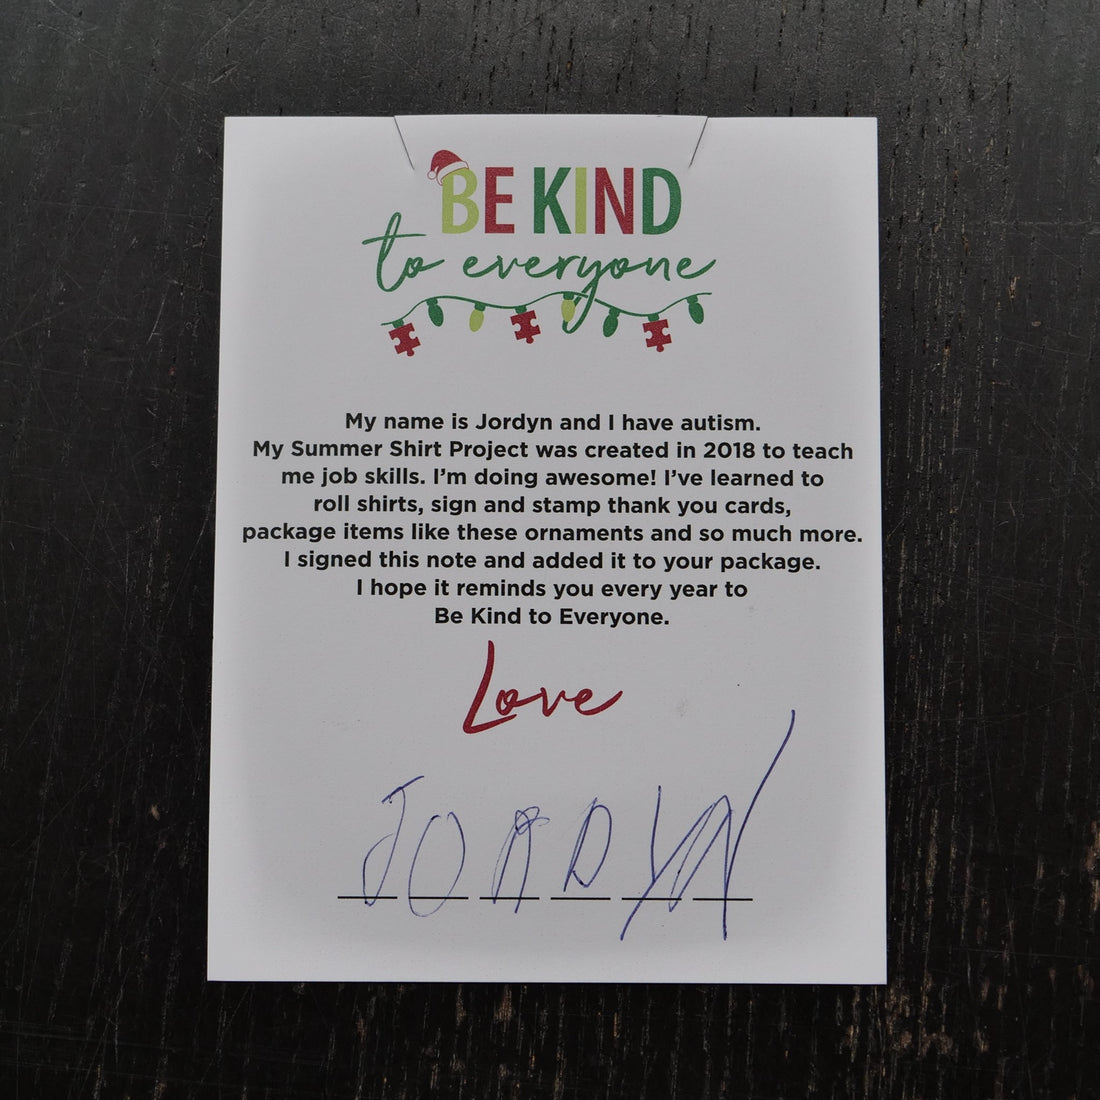 BE KIND
to everyone
My name is Jordyn and I have autism.
My Summer Shirt Project was created in 2018 to teach
me job skills. I’m doing awesome! I’ve learned to
roll shirts, sign and stamp thank you cards,
package items like these ornaments and so much more.
I signed this note and added it to your package.
I hope it reminds you every year to
Be Kind to Everyone.
Love
JORDYN